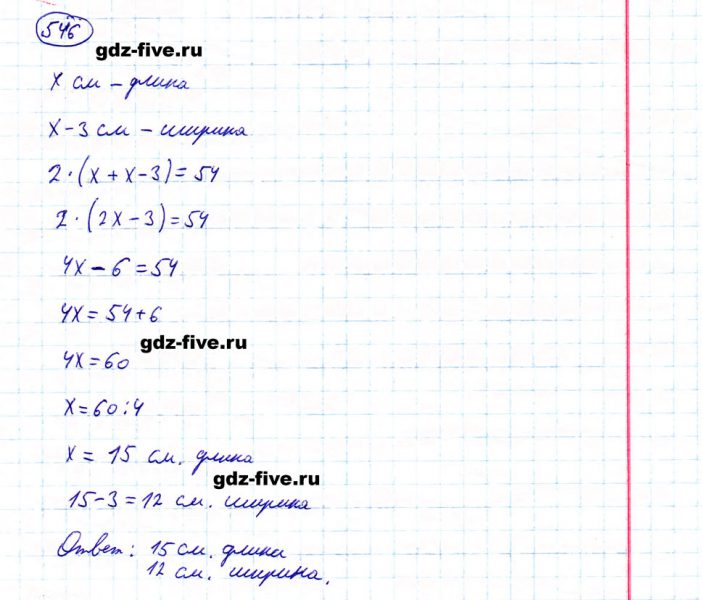 546
gdz-five.ru
x см – длина
x – 3 см – ширина
2·(x + x – 3) = 54
2·(2x – 3) = 54
4x – 6 = 54
4x = 54 + 6
gdz-five.ru
4x = 60
x = 60 : 4
x = 15 см. длина
gdz-five.ru
15 – 3 = 12 см. ширина
Ответ: 15 см. длина
12 см. ширина.